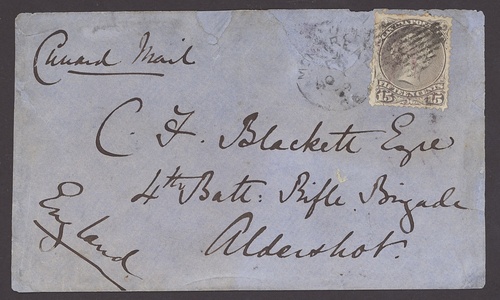 Cunard Mail
CANADA POSTAGE
FIFTEEN CENTS
15 15
C. F. Blackett Esqre
4th Batt: Rifle Brigade
Aldershot.
England